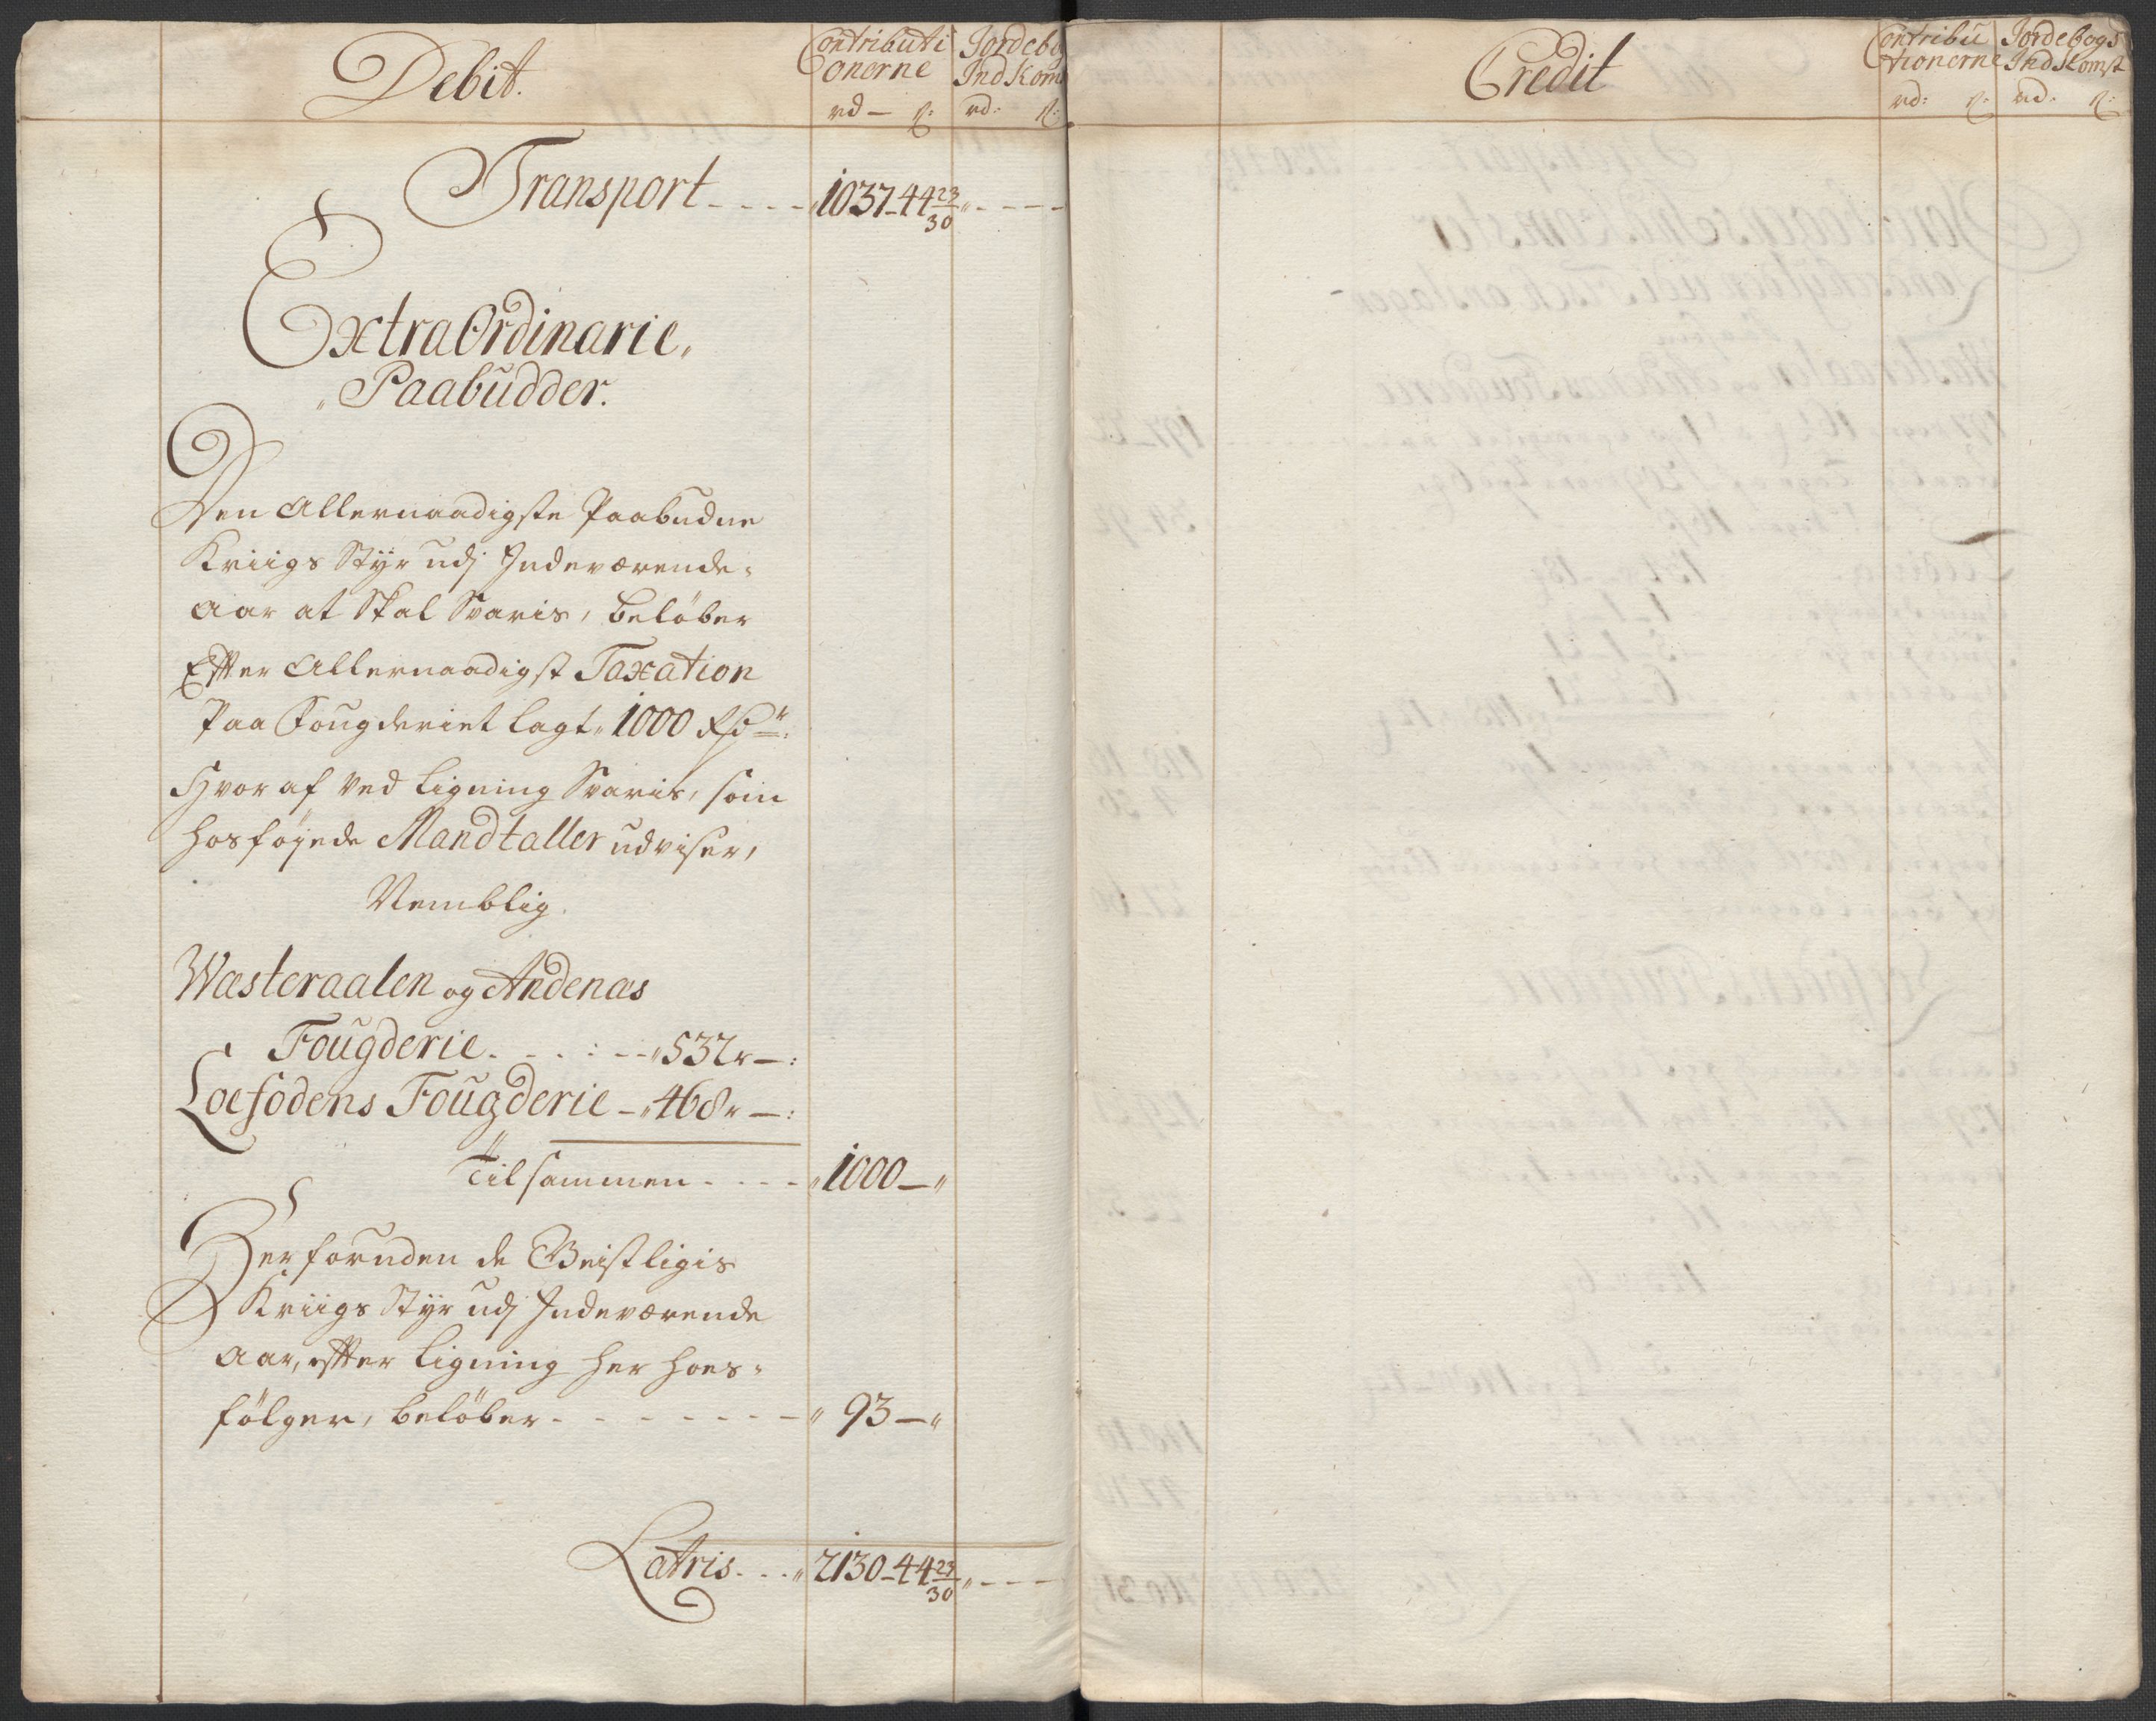 Debit.
Contributi
onerne
Jordebo
Ind Kom
rd — ß: rd: ß:
Transport - - - - „1037-44 23/30 „ - - - -
Extra Ordinarie,
Paabudder.
Den Allernaadigste Paabudne
Kriigs Styr udj Indeværende
Aar at Skal Svaris, beløber
Efter Allernaadigst Taxation
Paa Fougderiet lagt„ 1000 Rdr:
Hvor af ved Ligning Svaris, som
hosføyede Mandtaller udviser,
Nemblig
Wæsteraalen og Andenæs
Fougderie. - - - : - - „532r —:
Loefodens Fougderie —„468r —:
Tilsammen - - - - „1000—„
Her foruden de Geistligis
Kriigs Styr udj Indeværende
Aar, efter Ligning her hoes-
følger, beløber - - - - - - - „ 93—„
Latris. - - „ 2130-44 23/30 „ - - -
Credit
Contribu
tionerne
Jordebogs
Ind Komst
rd: ß: rd: ß: